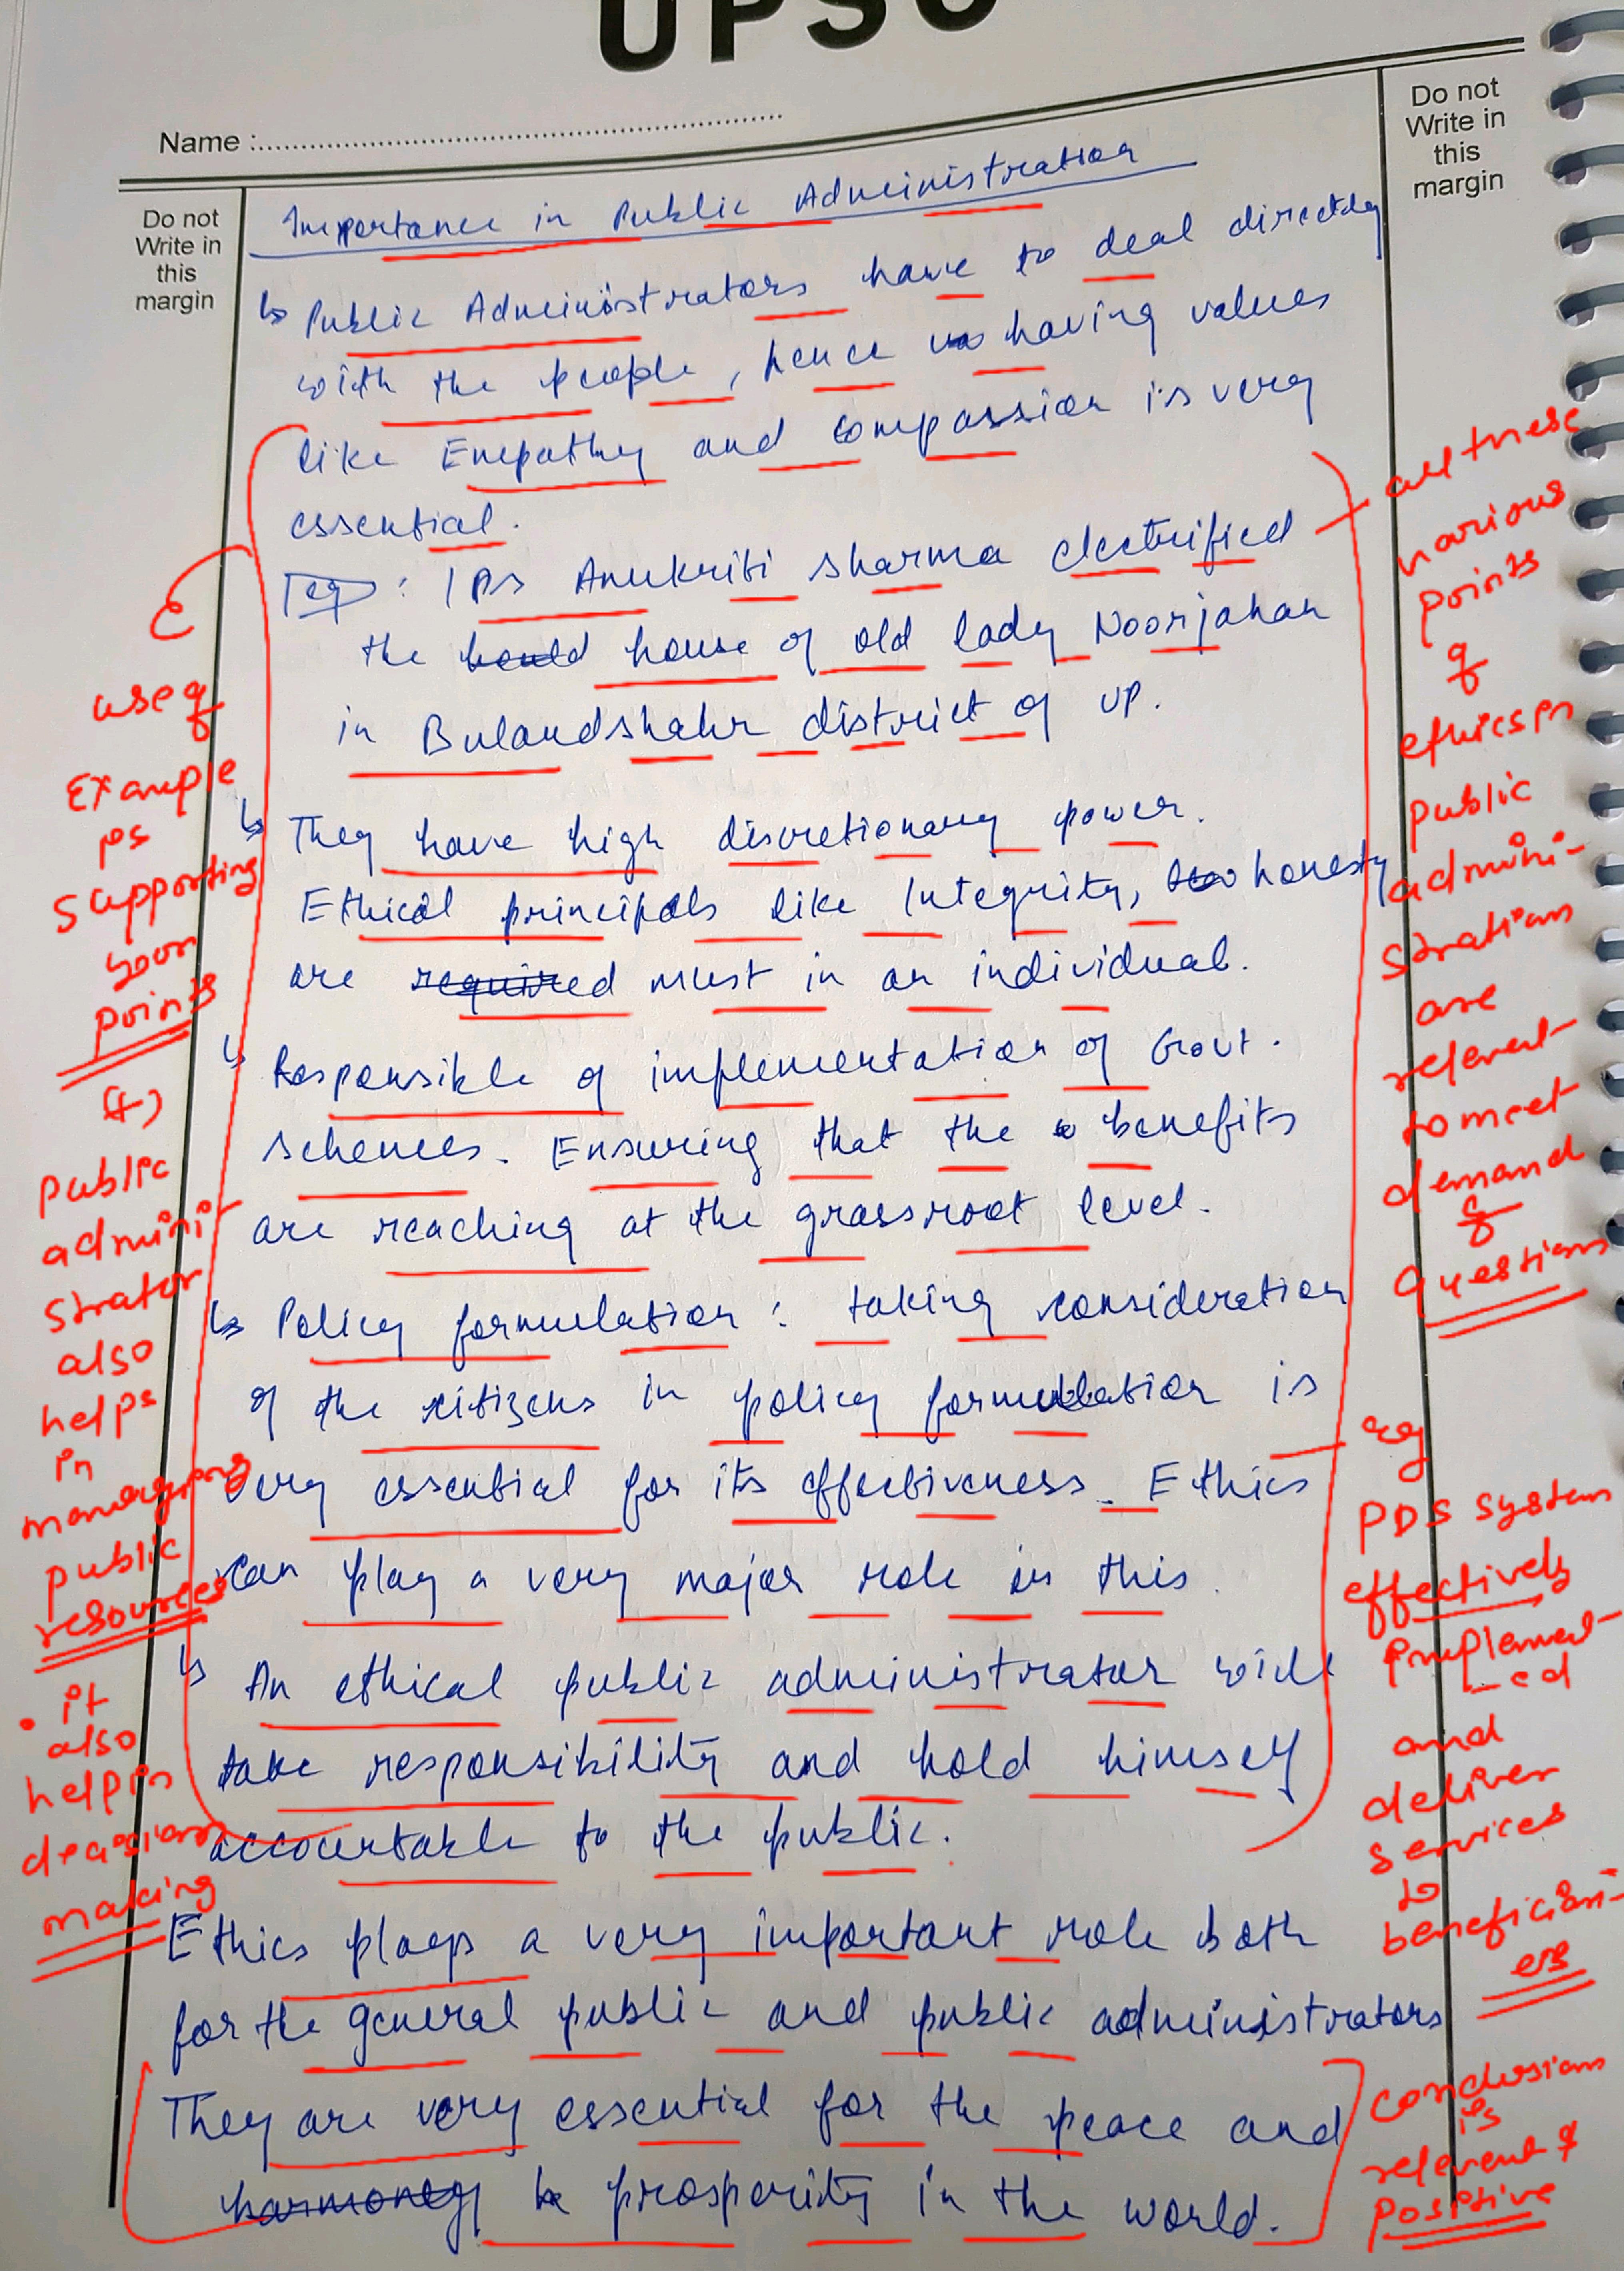 UPSC
Name :
Do not
Write in
this
margin
Do not
Write in
this
margin
Importance in Public Administration
↳ Public Administrators have to deal directly
with the people, hence having values
like Empathy and compassion is very
essential.
eg : IPS Anukriti Sharma electrified
the house of old lady Noorjahan
in Bulandshahr district of UP.
↳ They have high discretionary power.
Ethical principals like Integrity, honesty
are required must in an individual.
↳ Responsible of implementation of Govt.
schemes. Ensuring that the benefits
are reaching at the grassroot level.
↳ Policy formulation : taking consideration
of the citizens in policy formulation is
very essential for its effectiveness. Ethics
can play a very major role in this.
↳ An ethical public administrator will
take responsibility and hold himself
accountable to the public.
Ethics plays a very important role both
for the general public and public administrators
They are very essential for the peace and
harmony prosperity in the world.
use of
Example
is
supporting
your
points
(+)
public
admini-
strator
also
helps
in
managing
public
resources
• it
also
help in
decisions
making
all these
various
points
of
ethics in
public
admini-
strations
are
relevent
to meet
demand
of
questions
eg
PDS system
effectively
implement-
ed
and
deliver
services
to
beneficiari-
ers
conclusions
is
relevent &
positive